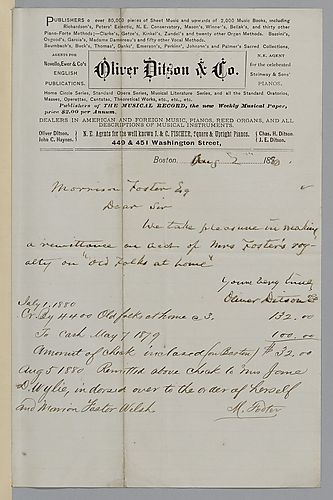 PUBLISHERS of over 80,000 pieces of Sheet Music and upwards of 2,000 Music Books, including
Richardson's, Peters' Eclectic, N. E. Conservatory, Mason's, Winner's, Bellak's, and thirty other
Piano-Forte Methods;—Clarke's, Getze's, Kinkel's, Zundel's and twenty other Organ Methods. Bassini's,
Osgood's, Garcia's, Madame Dammoreau's and fifty other Vocal Methods,
Baumbach's, Buck's, Thomas', Danks', Emerson's, Perkins', Johnson's and Palmer's Sacred Collections,
AGENTS FOR
Novello, Ewer & Co's
ENGLISH
PUBLICATIONS.
Oliver Ditson & Co.
N.E. AGENT
for the celebrated
Steinway & Sons'
PIANOS.
Home Circle Series, Standard Opera Series, Musical Literature Series, and all the Standard Oratorios,
Masses, Operettas, Cantatas, Theoretical Works, etc., etc., etc.
Publishers of THE MUSICAL RECORD, the new Weekly Musical Paper,
price $2.00 per Annum.
DEALERS IN AMERICAN AND FOREIGN MUSIC, PIANOS, REED ORGANS, AND ALL
DESCRIPTIONS OF MUSICAL INSTRUMENTS.
Oliver Ditson.
John C. Haynes.
N. E. Agents for the well known J. & C. FISCHER, Square & Upright Pianos.
Chas. H. Ditson.
J. E. Ditson.
449 & 451 Washington Street,
Boston, Aug 2 1880
Morrison Foster Esq
Dear Sir
We take pleasure in making
a remittance on acct of Mrs Foster's roy-
alty on "Old Folks at home"
Yours very truly
Oliver Ditson & Co
July 1, 1880
Cr. By 4400 Old folks at home @ 3. 132.00
To Cash May 7 1879 100.00
Amount of Check inclosed (on Boston) $32.00
Aug 5 1880 Remitted above Check to Mrs Jane
D Wylie, indorsed over to the order of herself
and Marion Foster Welsh
M. Foster